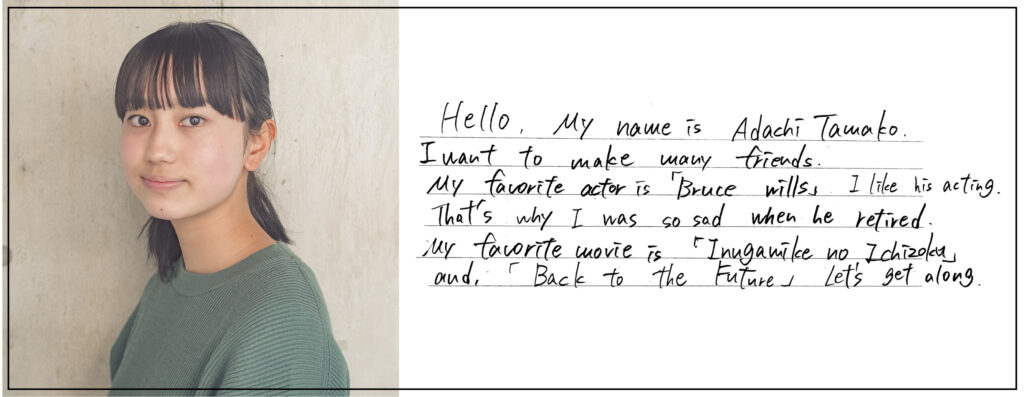 Hello. My name is Adachi Tamako.
I want to make many friends.
My favorite actor is 「Bruce wills」 I like his acting.
That's why I was so sad when he retired.
My favorite movie is 「Inugamike no Ichizoku」
and, 「Back to the Future」 Let's get along.